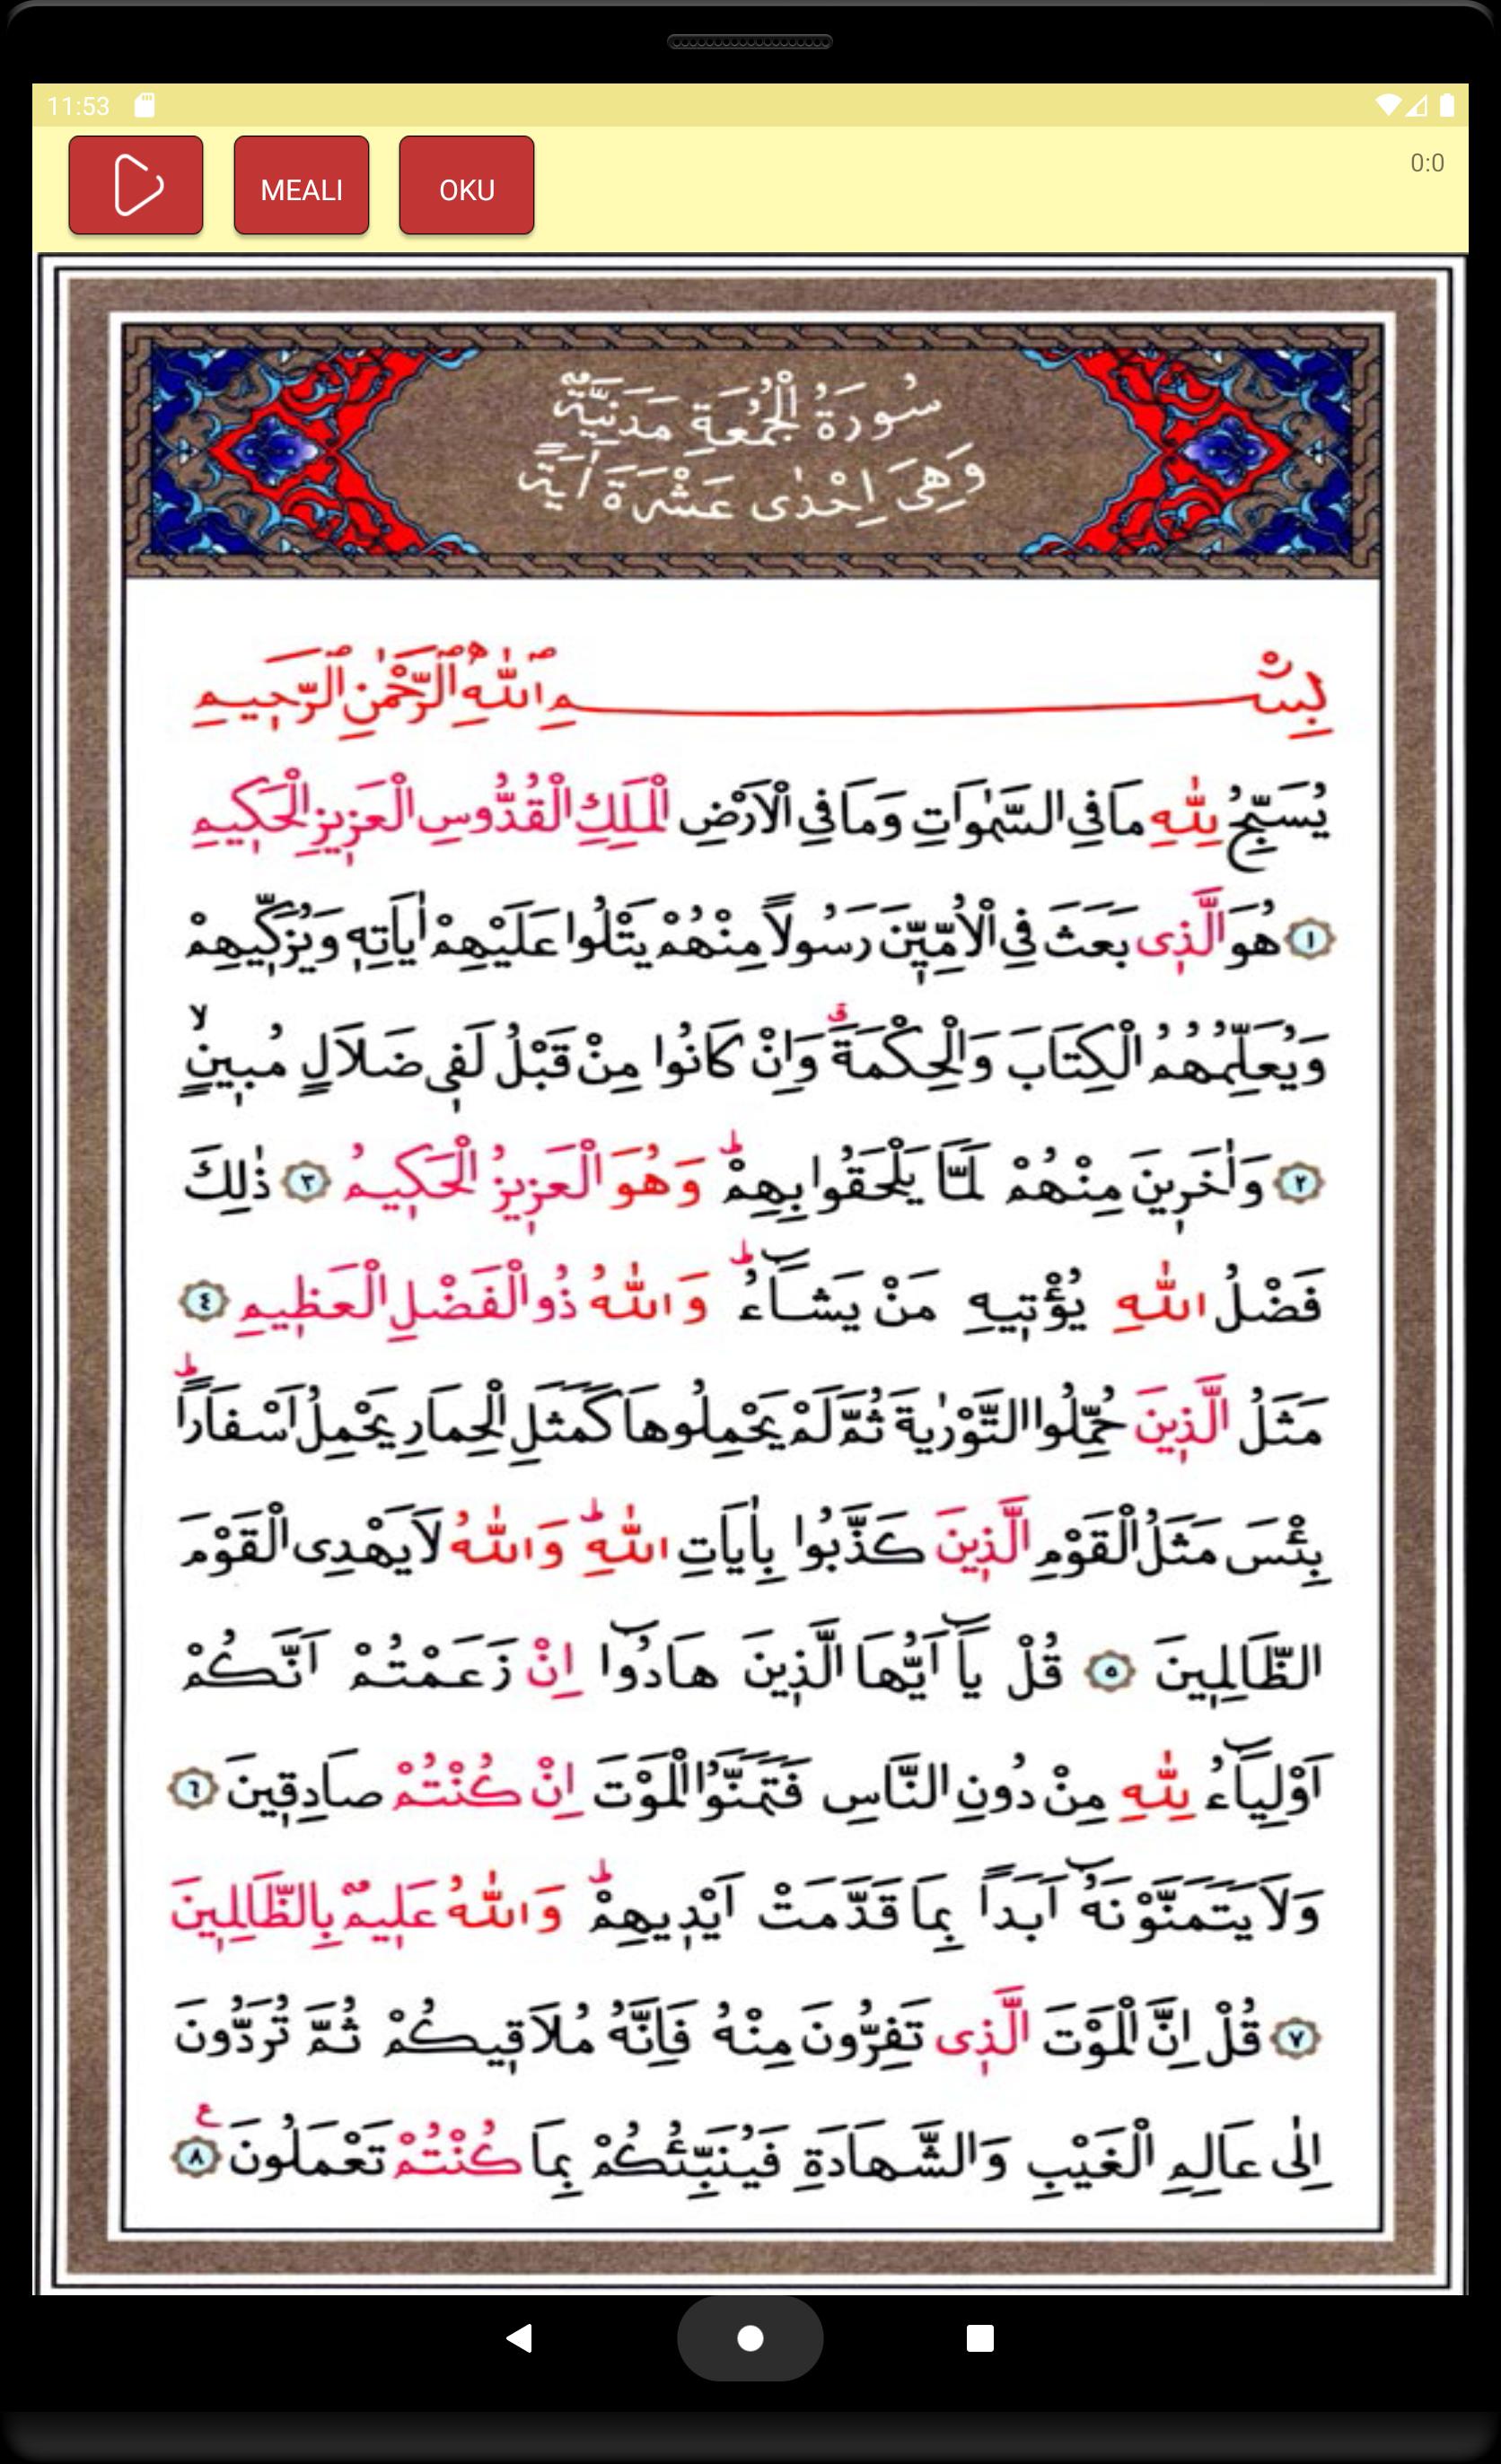 11:53
MEALI
OKU
0:0
سُورَةُ الْجُمُعَةِ مَدَنِيَّةٌ
وَهِيَ اِحْدٰى عَشْرَةَ اٰيَةً
بِسْمِ اللّٰهِ الرَّحْمٰنِ الرَّحِيمِ
يُسَبِّحُ لِلّٰهِ مَا فِي السَّمٰوَاتِ وَمَا فِي الْاَرْضِ الْمَلِكِ الْقُدُّوسِ الْعَزِيزِ الْحَكِيمِ
١ هُوَ الَّذِى بَعَثَ فِي الْاُمِّيِّنَ رَسُولاً مِنْهُمْ يَتْلُوا عَلَيْهِمْ اٰيَاتِهِ وَيُزَكِّيهِمْ
وَيُعَلِّمُهُمُ الْكِتَابَ وَالْحِكْمَةَ ۗ وَاِنْ كَانُوا مِنْ قَبْلُ لَفِى ضَلَالٍ مُبِينٍ ۙ
٢ وَاٰخَرِينَ مِنْهُمْ لَمَّا يَلْحَقُوا بِهِمْ ۜ وَهُوَ الْعَزِيزُ الْحَكِيمُ ٣ ذٰلِكَ
فَضْلُ اللّٰهِ يُؤْتِيهِ مَنْ يَشَٓاءُ ۜ وَاللّٰهُ ذُو الْفَضْلِ الْعَظِيمِ ٤
مَثَلُ الَّذِينَ حُمِّلُوا التَّوْرٰيةَ ثُمَّ لَمْ يَحْمِلُوهَا كَمَثَلِ الْحِمَارِ يَحْمِلُ اَسْفَاراً ۜ
بِئْسَ مَثَلُ الْقَوْمِ الَّذِينَ كَذَّبُوا بِاٰيَاتِ اللّٰهِ ۜ وَاللّٰهُ لَا يَهْدِى الْقَوْمَ
الظَّالِمِينَ ٥ قُلْ يَٓا اَيُّهَا الَّذِينَ هَادُٓوا اِنْ زَعَمْتُمْ اَنَّكُمْ
اَوْلِيَٓاءُ لِلّٰهِ مِنْ دُونِ النَّاسِ فَتَمَنَّوُا الْمَوْتَ اِنْ كُنْتُمْ صَادِقِينَ ٦
وَلَا يَتَمَنَّوْنَهُٓ اَبَداً بِمَا قَدَّمَتْ اَيْدِيهِمْ ۜ وَاللّٰهُ عَلِيمٌ بِالظَّالِمِينَ
٧ قُلْ اِنَّ الْمَوْتَ الَّذِى تَفِرُّونَ مِنْهُ فَاِنَّهُ مُلَاقِيكُمْ ثُمَّ تُرَدُّونَ
اِلٰى عَالِمِ الْغَيْبِ وَالشَّهَادَةِ فَيُنَبِّئُكُمْ بِمَا كُنْتُمْ تَعْمَلُونَ ع ٨